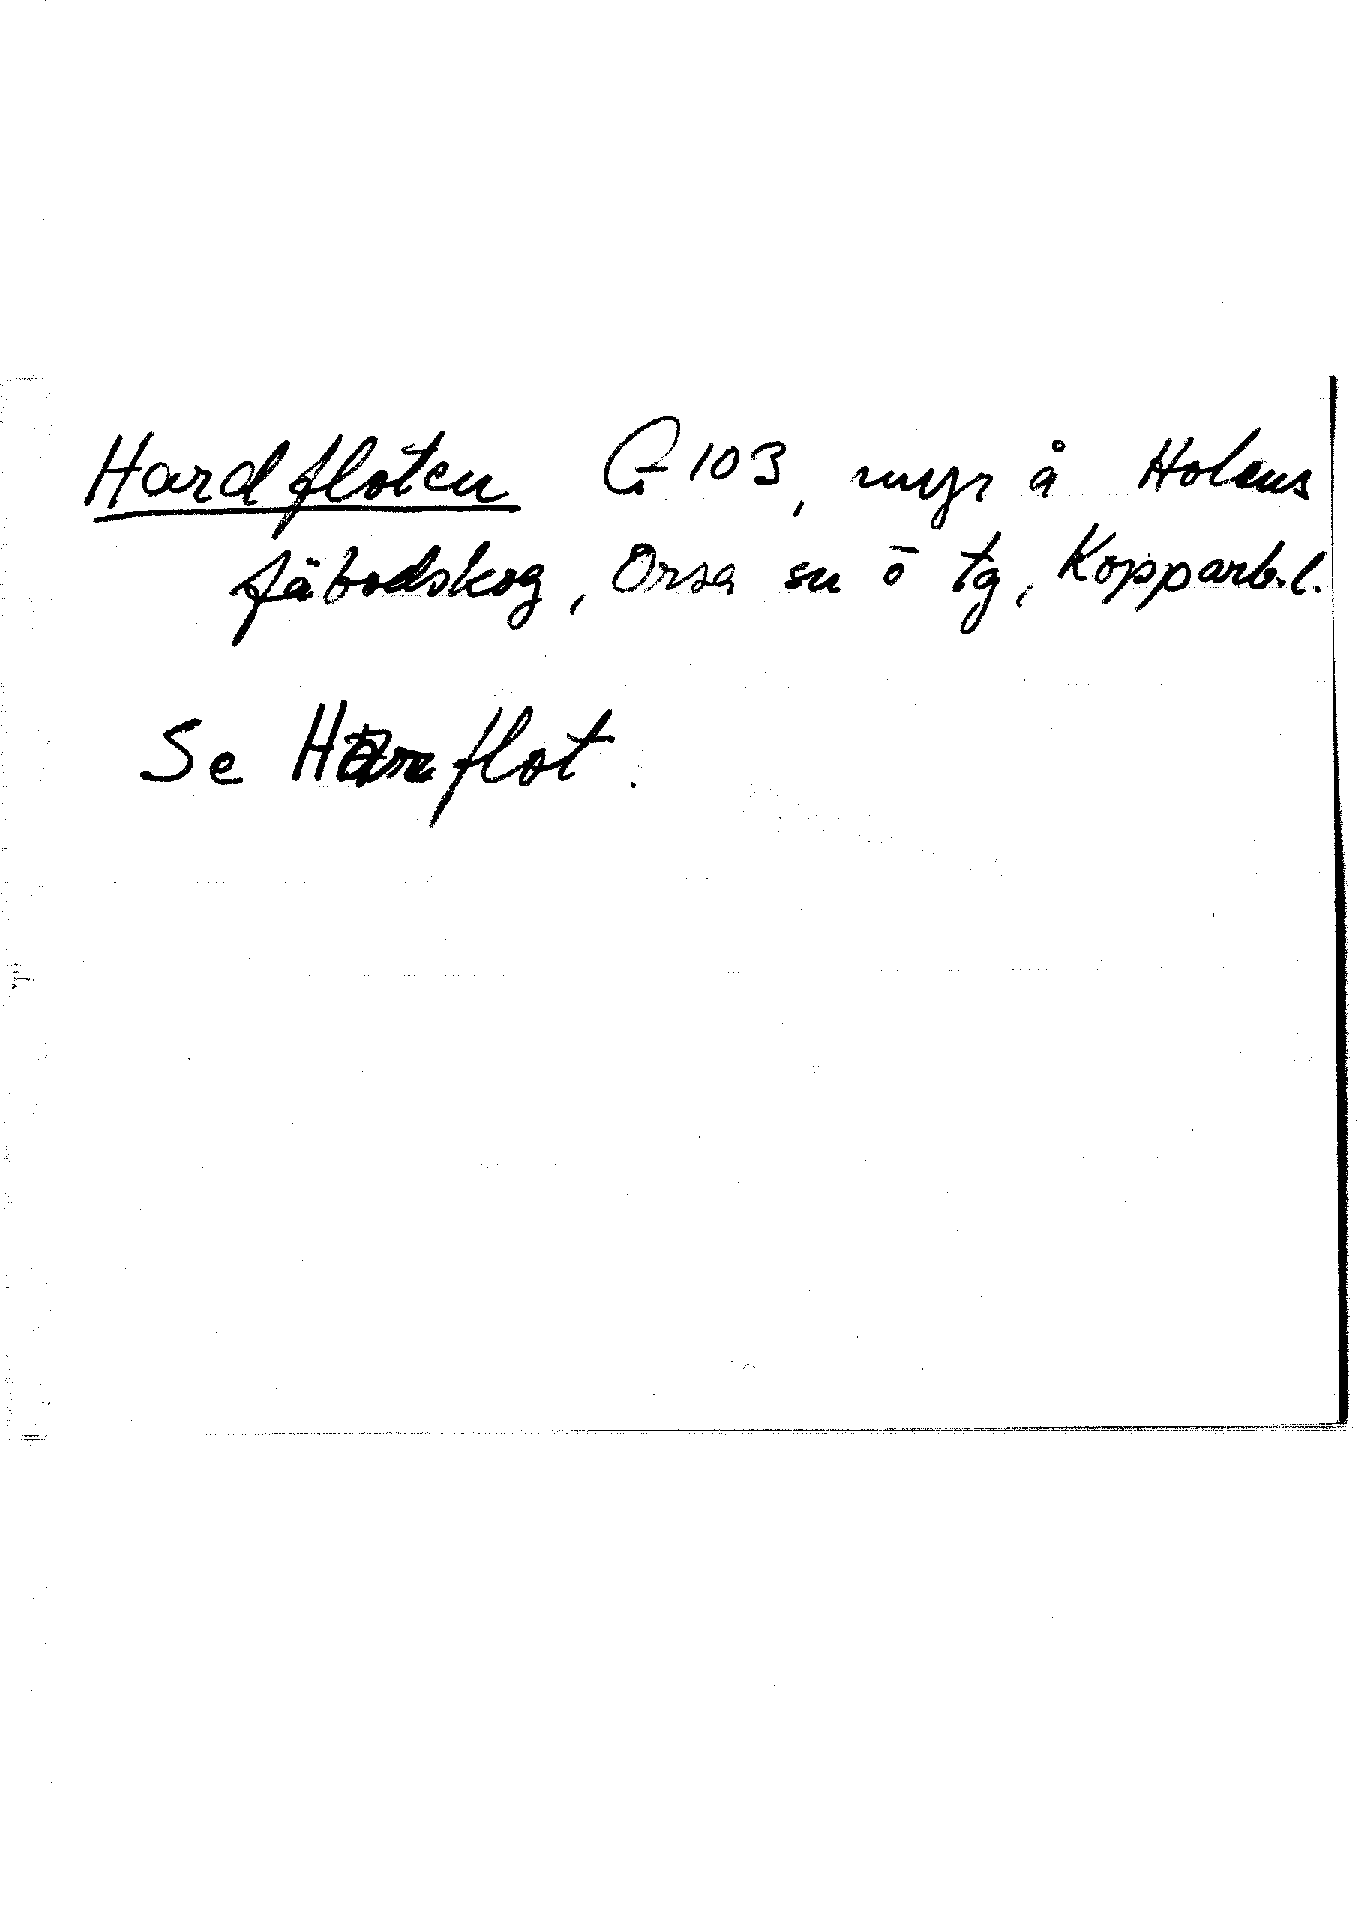 Hardfloten G 103, myr å Holens
fäbodskog, Orsa sn o tg, Kopparb.l.
Se Harrflot.